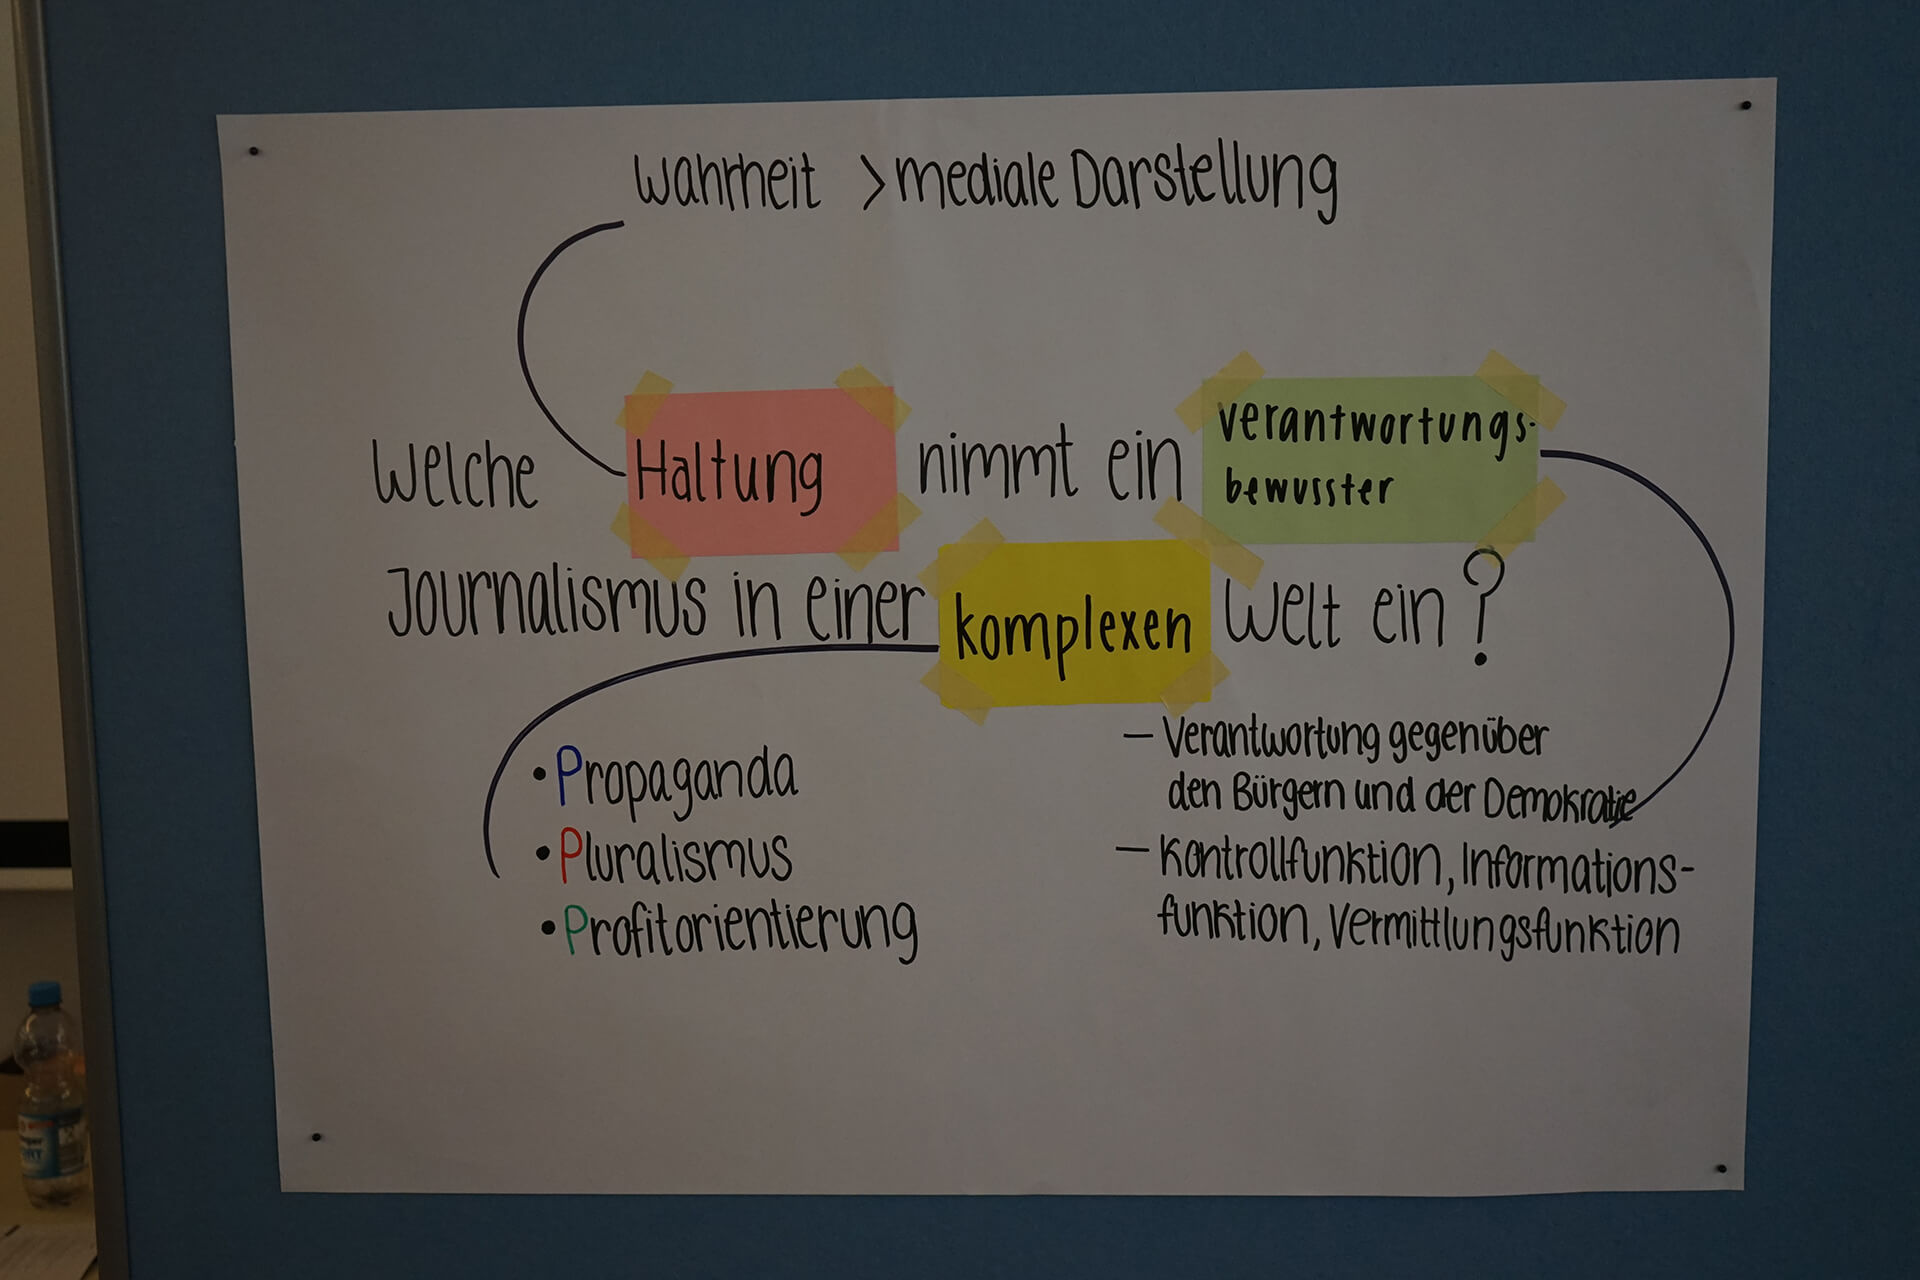 Wahrheit > mediale Darstellung
Welche Haltung nimmt ein verantwortungs-
bewusster
Journalismus in einer komplexen Welt ein?
• Propaganda
• Pluralismus
• Profitorientierung
– Verantwortung gegenüber
den Bürgern und der Demokratie
– Kontrollfunktion, Informations-
funktion, Vermittlungsfunktion